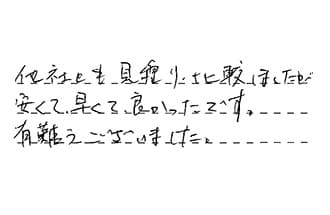 他社とも見積り比較ましたが
安くて、早くて良かったです。
有難うございました。